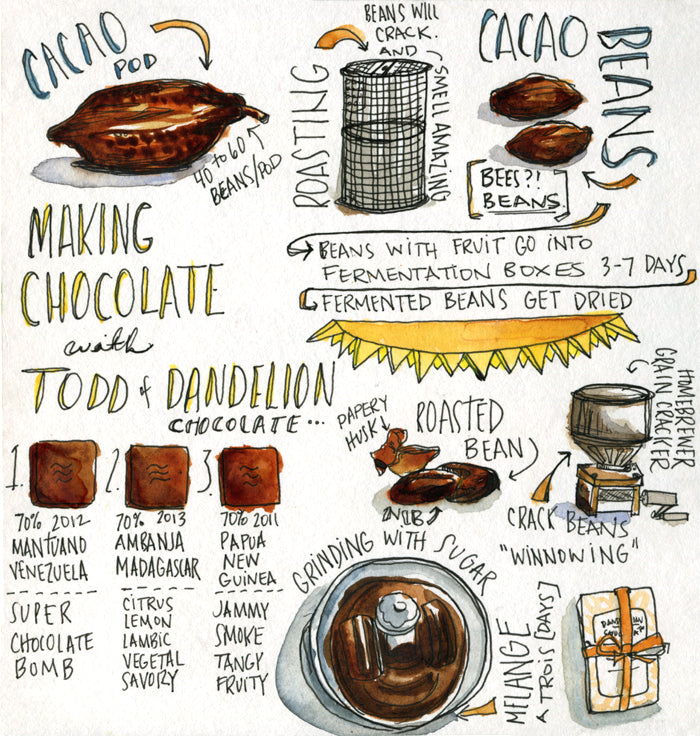 CACAO
POD
40 to 60
BEANS/POD
ROASTING
BEANS WILL
CRACK.
AND
SMELL AMAZING
CACAO
BEANS
BEES?!
BEANS.
MAKING
CHOCOLATE
with
TODD & DANDELION
CHOCOLATE...
BEANS WITH FRUIT GO INTO
FERMENTATION BOXES 3-7 DAYS
FERMENTED BEANS GET DRIED
1.
70% 2012
MANTUANO
VENEZUELA
SUPER
CHOCOLATE
BOMB
2.
70% 2013
AMBANJA
MADAGASCAR
CITRUS
LEMON
LAMBIC
VEGETAL
SAVORY
3.
70% 2011
PAPUA
NEW
GUINEA
JAMMY
SMOKE
TANGY
FRUITY
PAPERY
HUSK
ROASTED
BEAN
NIB
HOMEBREWER
GRAIN CRACKER
CRACK BEANS
"WINNOWING"
GRINDING WITH SUGAR
MELANGE
A TROIS [DAYS]
DANDELION